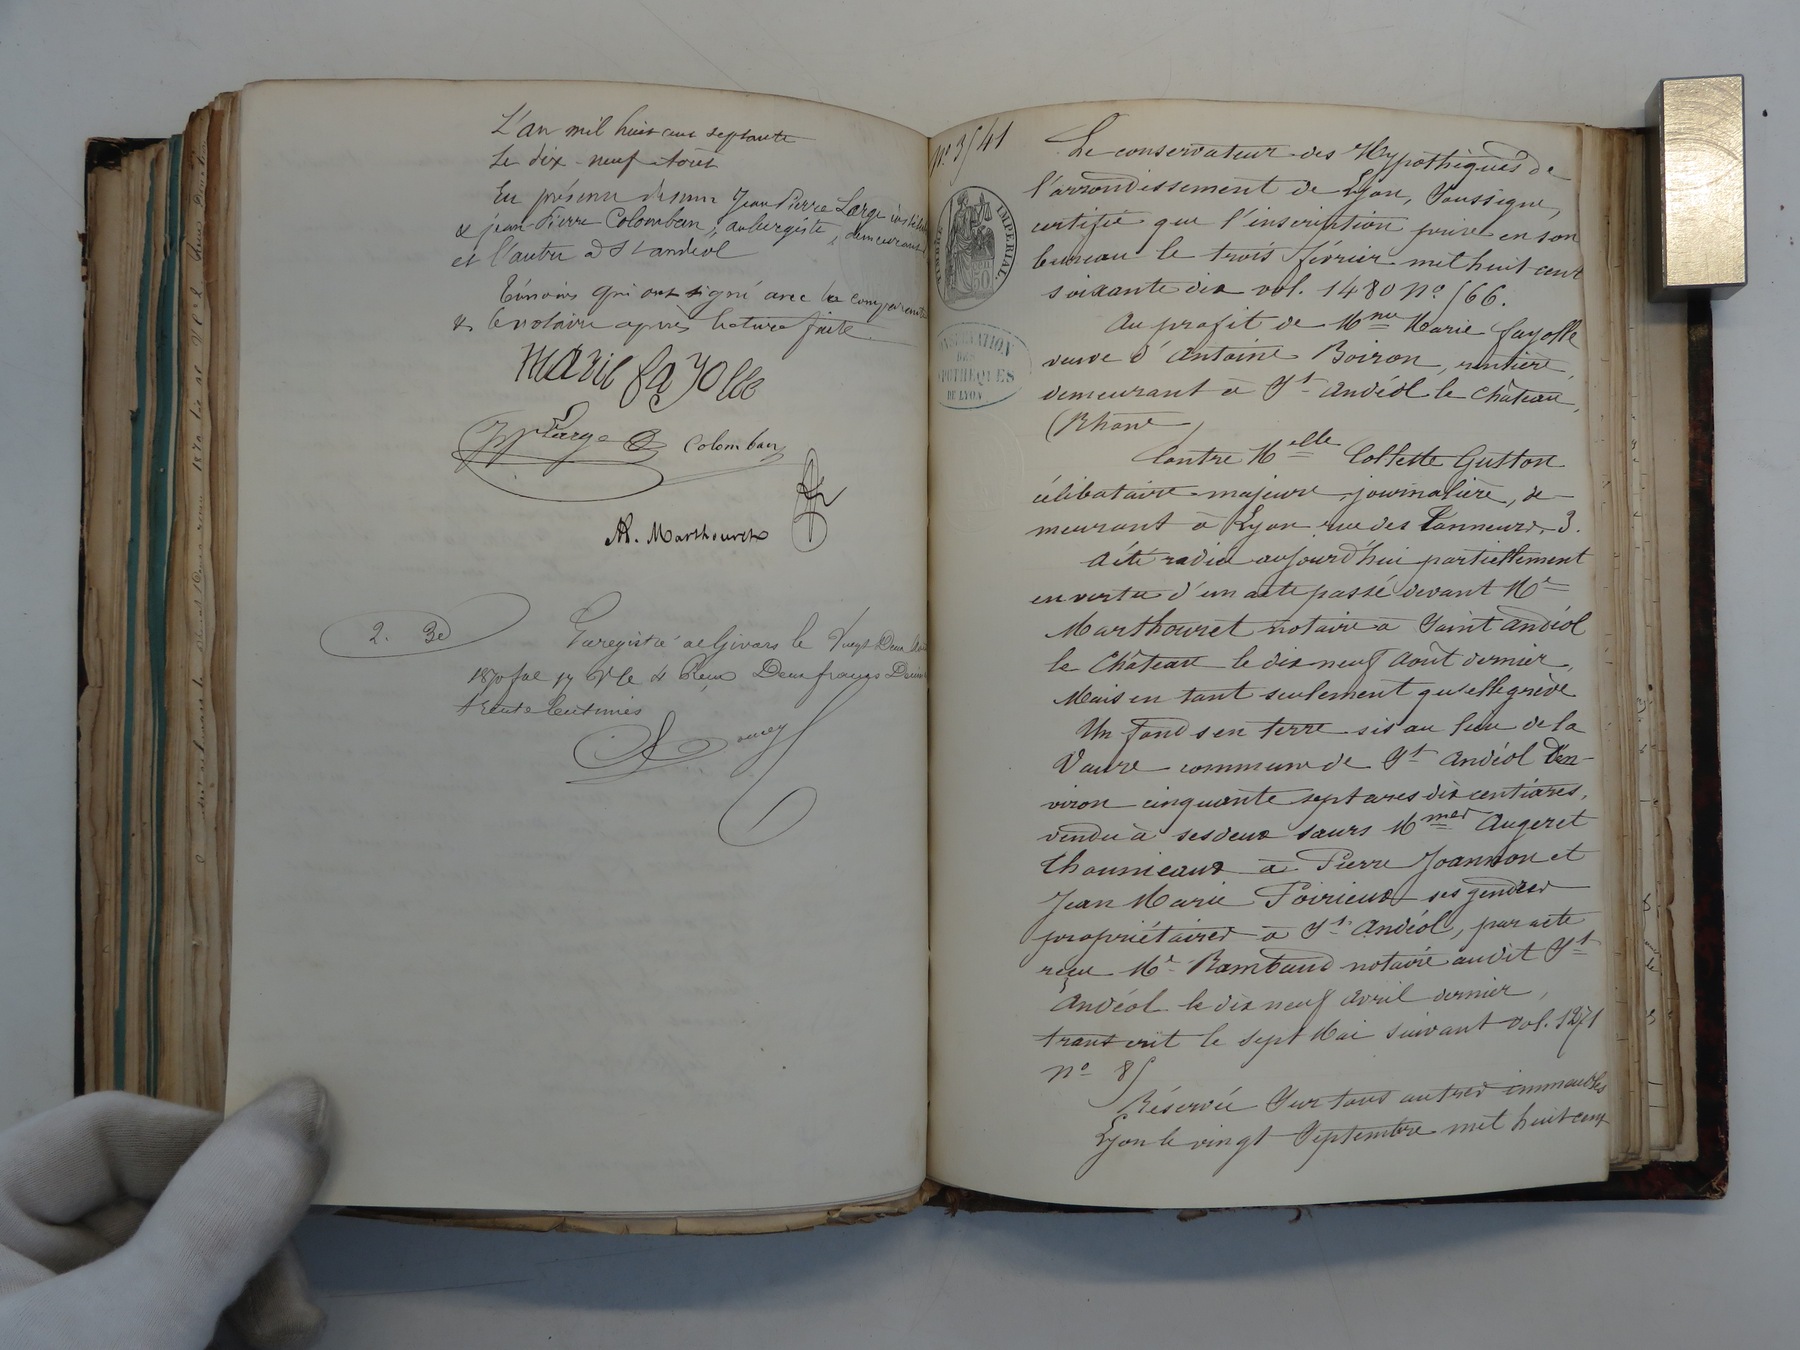 L'an mil huit cent septante
Le dix-neuf août
En présence de Jean Pierre Large
& jean Pierre Colomban, aubergiste, demeurant
et l'autre à St andéol
Témoins qui ont signé avec la comparente
& le notaire après lecture faite.
Marie fayolle
JP Large Colomban
Al. Marthouret
2. 30
Enregistré à Givors le Vingt Deux Août
1870 fol 17 V° C 4 Reçu Deux francs Décimes
trente Centimes
N° 3541
TIMBRE IMPERIAL
50
CONSERVATION
DES
HYPOTHEQUES
DE LYON
Le conservateur des Hypothèques de
l'arrondissement de Lyon, Soussigné,
certifie que l'inscription prise en son
bureau le trois février mil huit cent
soixante dix vol. 1480 N° 566.
Au profit de Mme Marie fayolle
veuve d'Antoine Boiron, rentière,
demeurant à St Andéol le Château,
(Rhône)
Contre Melle Collette Gutton
célibataire majeure, journalière, de-
meurant à Lyon rue des Tanneurs, 3.
A été radiée aujourd'hui partiellement
en vertu d'un acte passé devant Me
Marthouret notaire à Saint Andéol
le Château le dix neuf Août dernier,
Mais en tant seulement qu'elle grève
Un fonds en terre sis au lieu de la
Vaure commune de St Andéol d'en-
viron cinquante sept ares dix centiares,
vendu à ses deux sœurs Mmes Augeret
Thoumeaux à Pierre Joannon et
Jean Marie Poirieux ses gendres
propriétaires à St Andéol, par acte
reçu Me Rambaud notaire audit St
Andéol le dix neuf Avril dernier,
transcrit le sept Mai suivant vol. 1271
N° 85
Réservée Sur tous autres immeubles
Lyon le vingt Septembre mil huit cent